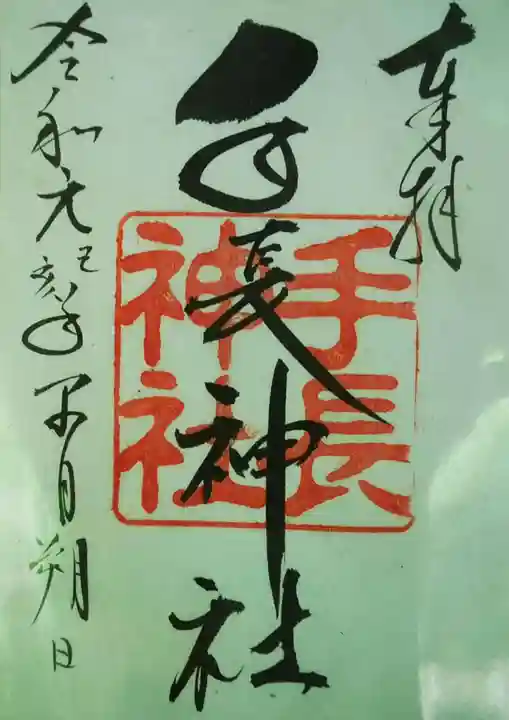 奉拝
手長神社
手長
神社
令和元己亥年 月朔日